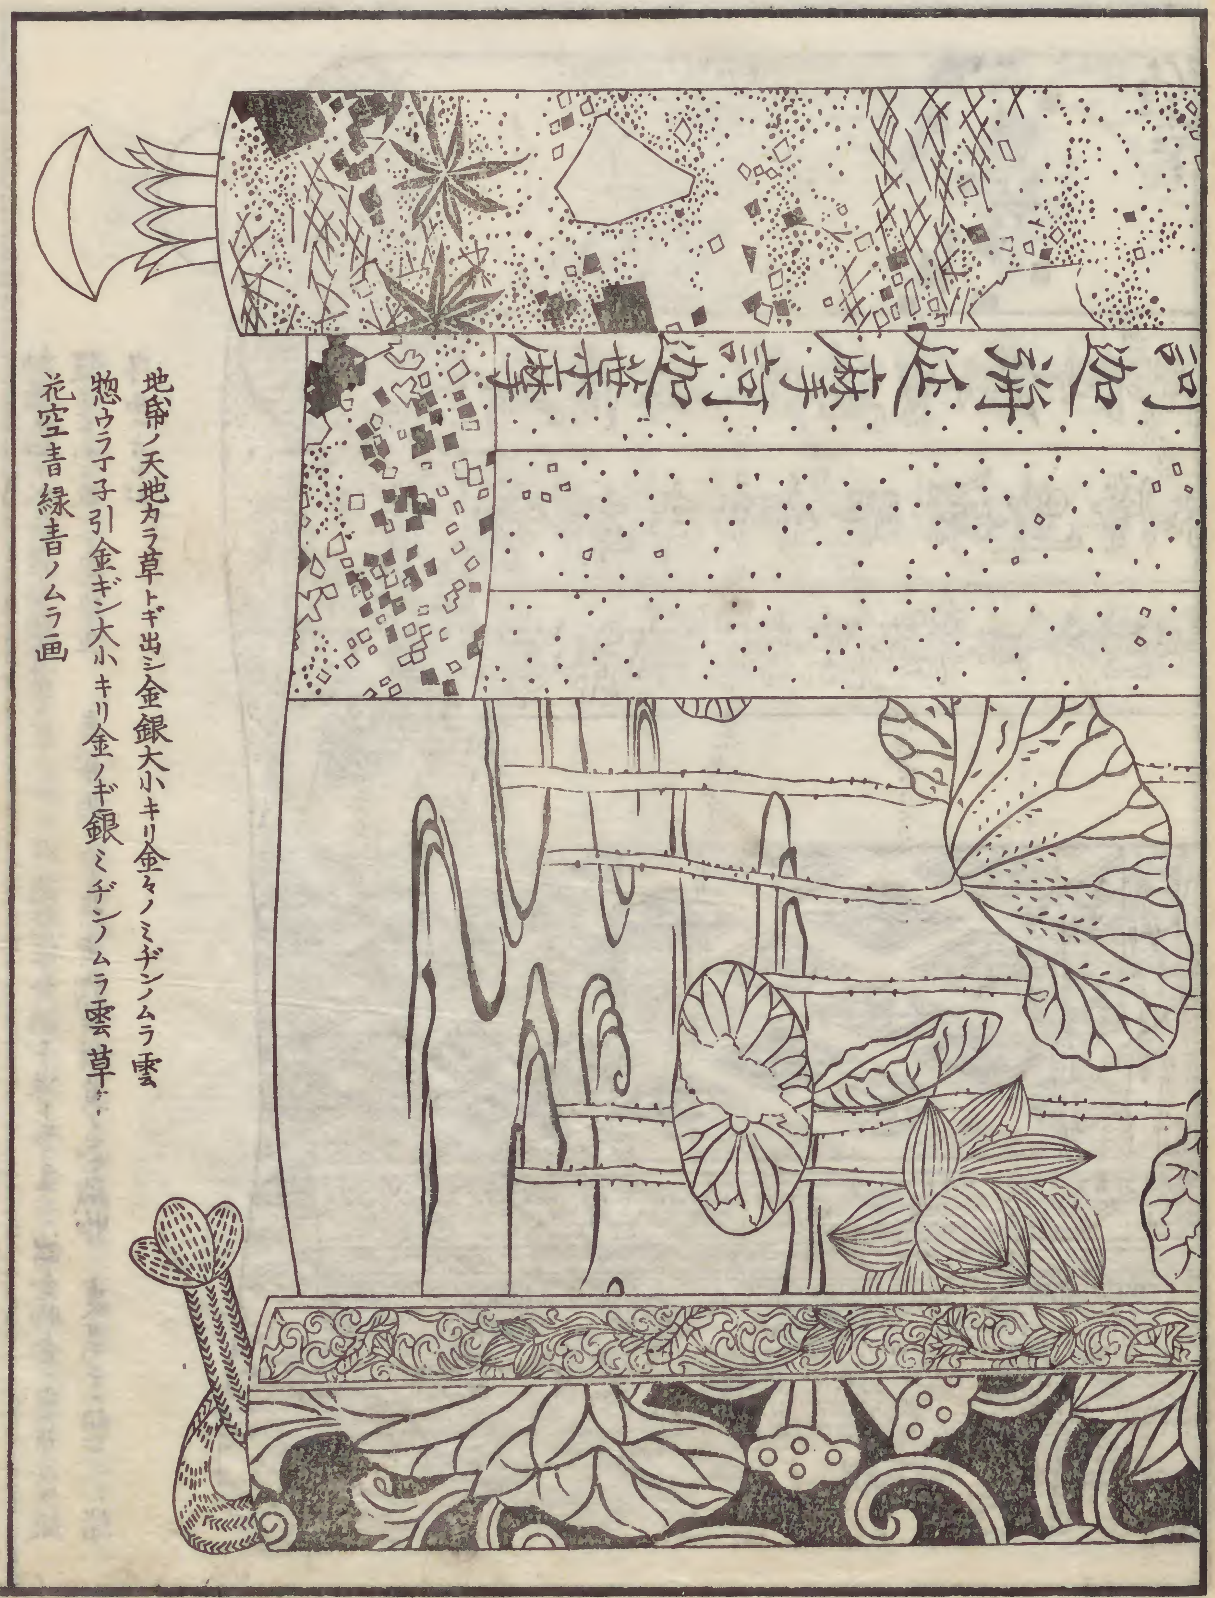 訶迦旃延摩訶迦葉摩
地帋ノ天地カラ草トギ出シ金銀大小キリ金々ノミヂンノムラ雲
惣ウラ丁子引金ギン大小キリ金ノギ銀ミヂンノムラ雲草
花空青緑青ノムラ画